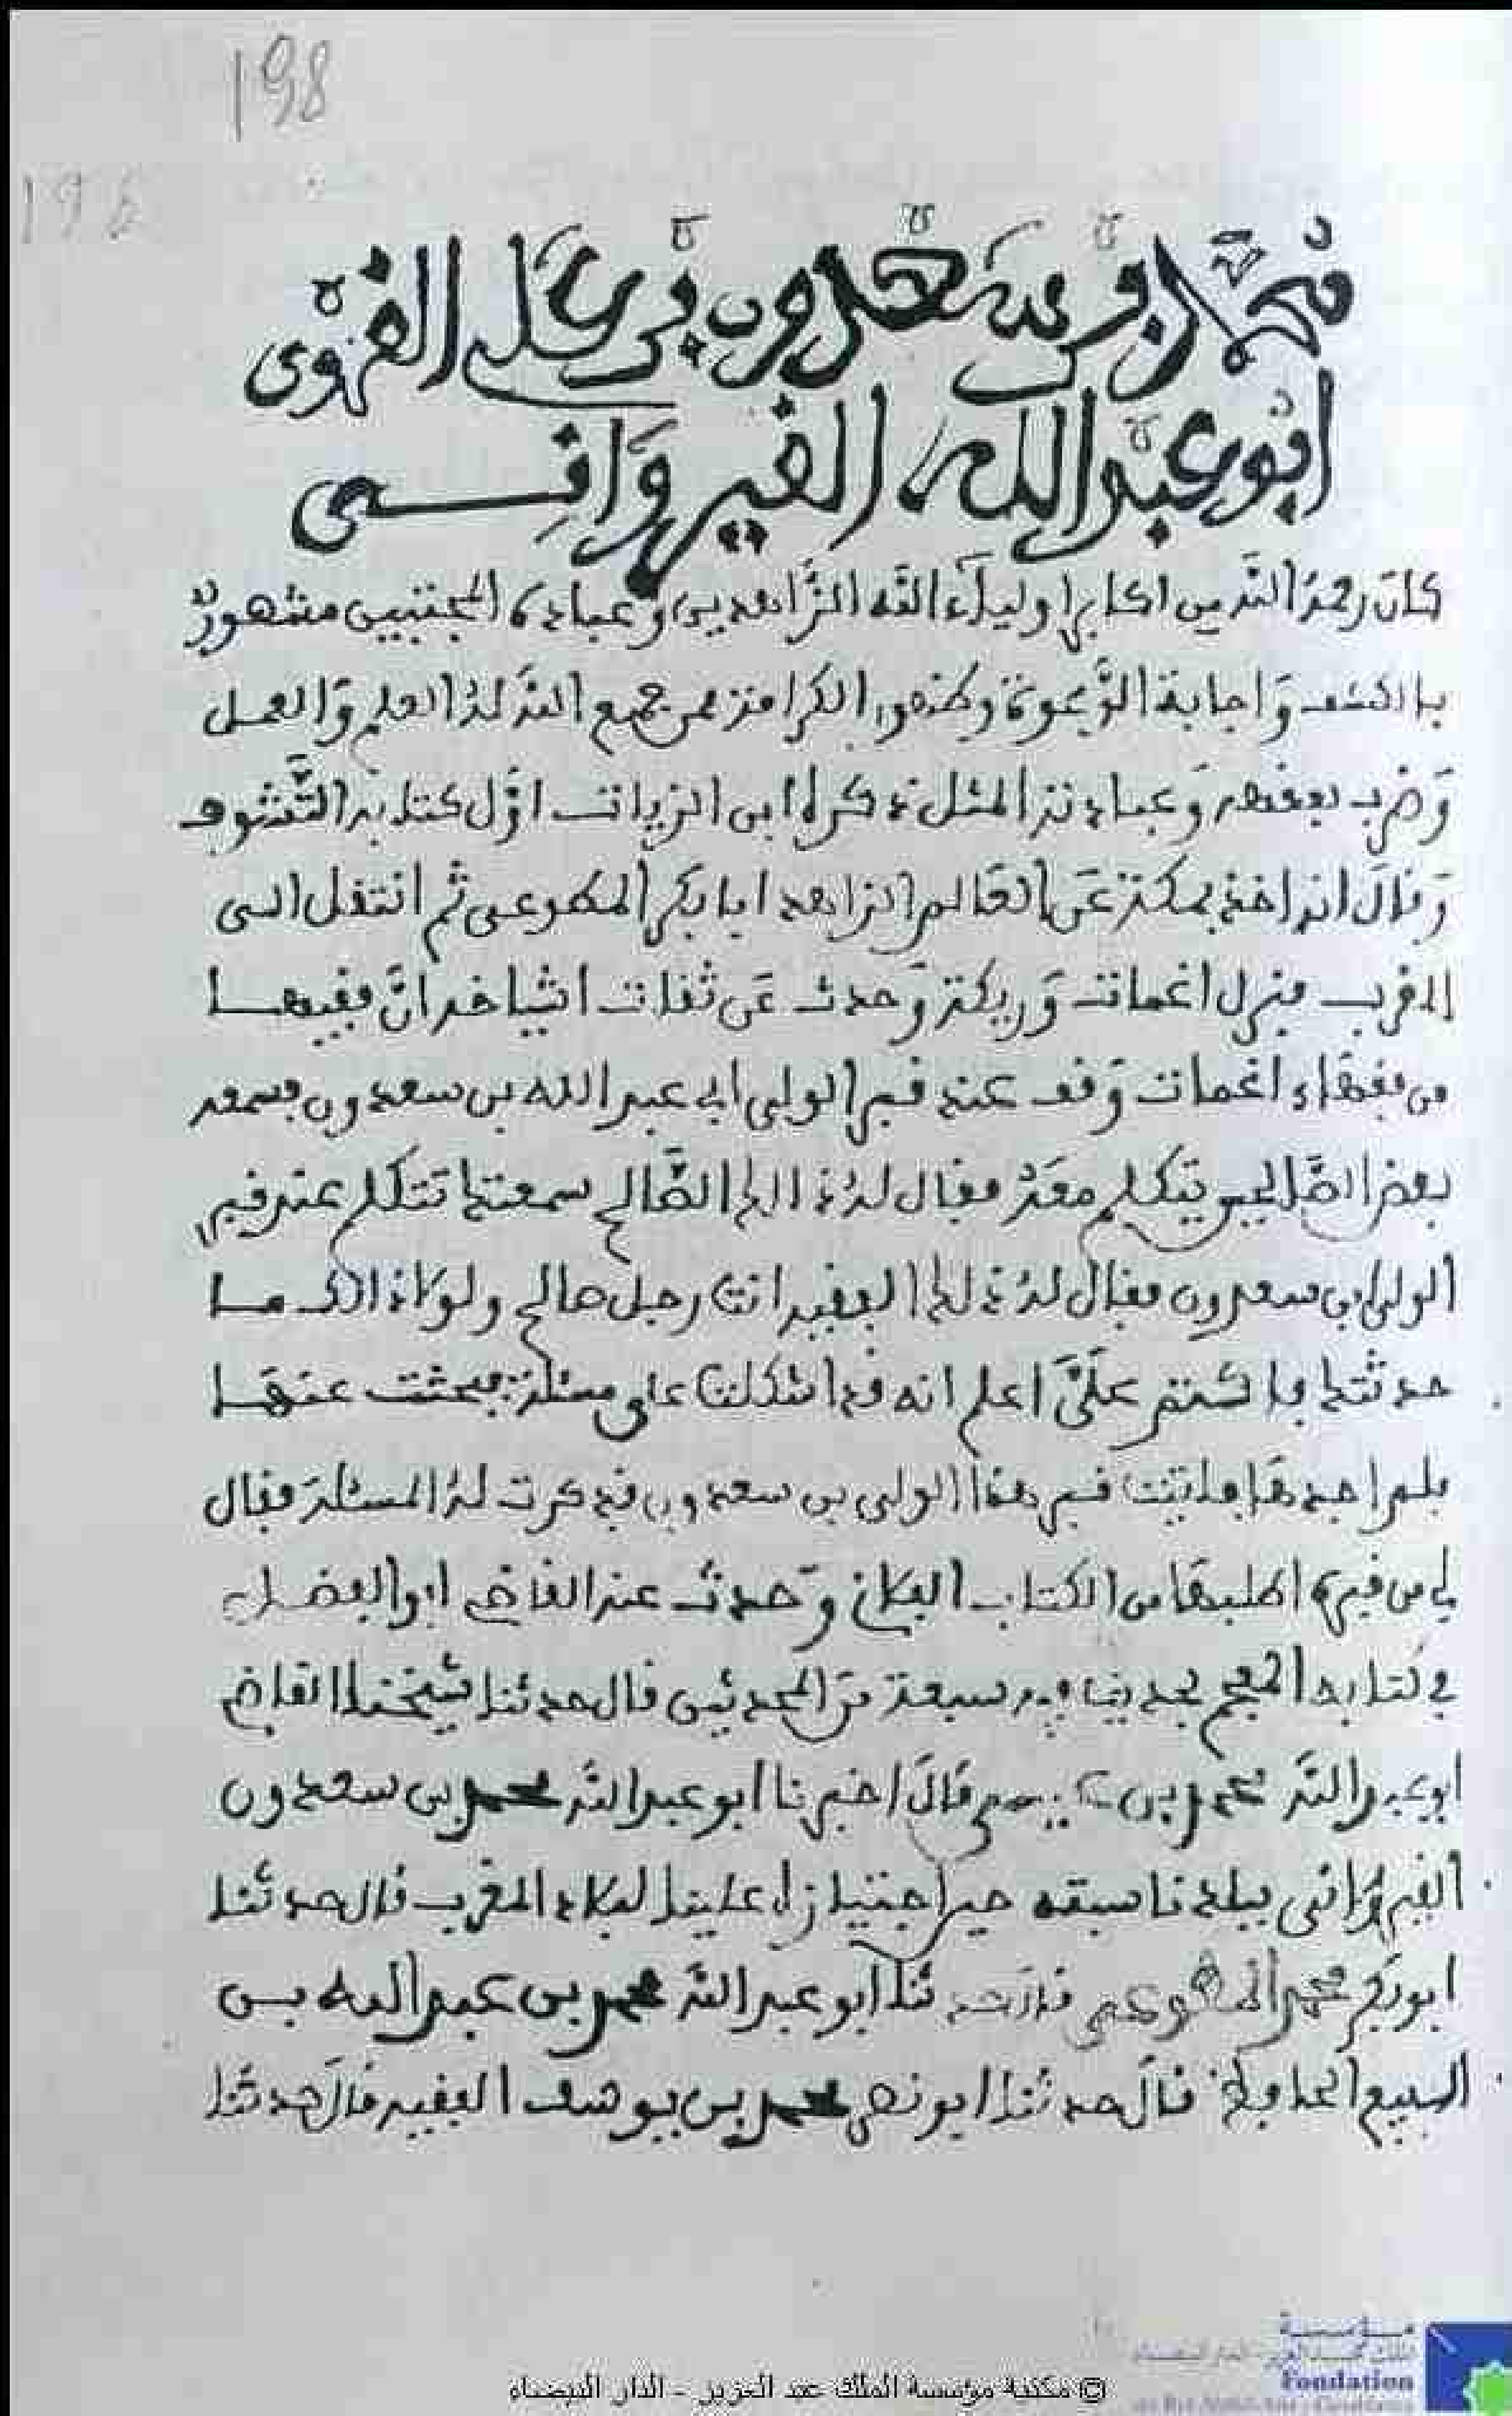 198
196
محمد بن سعدون بن علي الفهري
ابو عبد الله القيرواني
كان رحمه الله من اكابر اولياء الله الزاهدين وعباده المجتبيين مشهور
با الكشف وَاجابة الدَّعوة وظهور الكرامة ممن جمع الله لهُ العلم وَالعمل
وَضرب بعفته وَعبادته المثل ذكره ابن الزيات اوَّل كتابه التَّشوف
وَقالَ انه اخذ بمكة عَن العَالم الزاهد ابا بَكر المطوعى ثم انتقل الى
المغرب فنزل اغمات وَريكة وَحدث عَن ثقات اشياخه انَّ فقيها
من فقهاء اغمات وَقف عند قبر الولى ابي عبد الله بن سعدون فسمعه
بعض الصَّالحين يتكلم معَهُ فقال لهُ ذالك الصَّالح سمعتك تتكلم عند قبر
الولى بن سعدون فقال لهُ ذلك الفقيه انت رجل صالح ولو لا ذالك ما
حدثتك فاكتم عَلَىَّ اعلم انه قد اشكلت على مسئلة فبحثت عنهَا
فلم اجدهَا فاتيت قبر هَذا الولى بن سعدون فذكرت لهُ المسئلَة فقال
لي من قبره اطلبهَا من الكتاب الفلان وَحدث عنه القاضي ابوا الفضل
في كتابه المعجم بحديث فيه سبعة مّن المحمدين قال حدثنا شيخنا القاضي
ابو عبد الله محمد بن عيسى قالَ اخبرنا ابو عبد الله محمد بن سعدون
القيرَوَانى ببلدنا سبته حين اجتيازه علينا لبلاد المغرب قال حدثنا
ابو بَكر محمد المطوعى قالَ حدثنا ابو عبد الله محمد بن عبد الله بن
البيع الحا قالَ حدثنا ابو نصر محمد بن يوسف الفقيه قالَ حدثنا
مؤسسة
الملك عبد العزيز - الدار البيضاء
Fondation
© مكتبة مؤسسة الملك عبد العزيز - الدار البيضاء